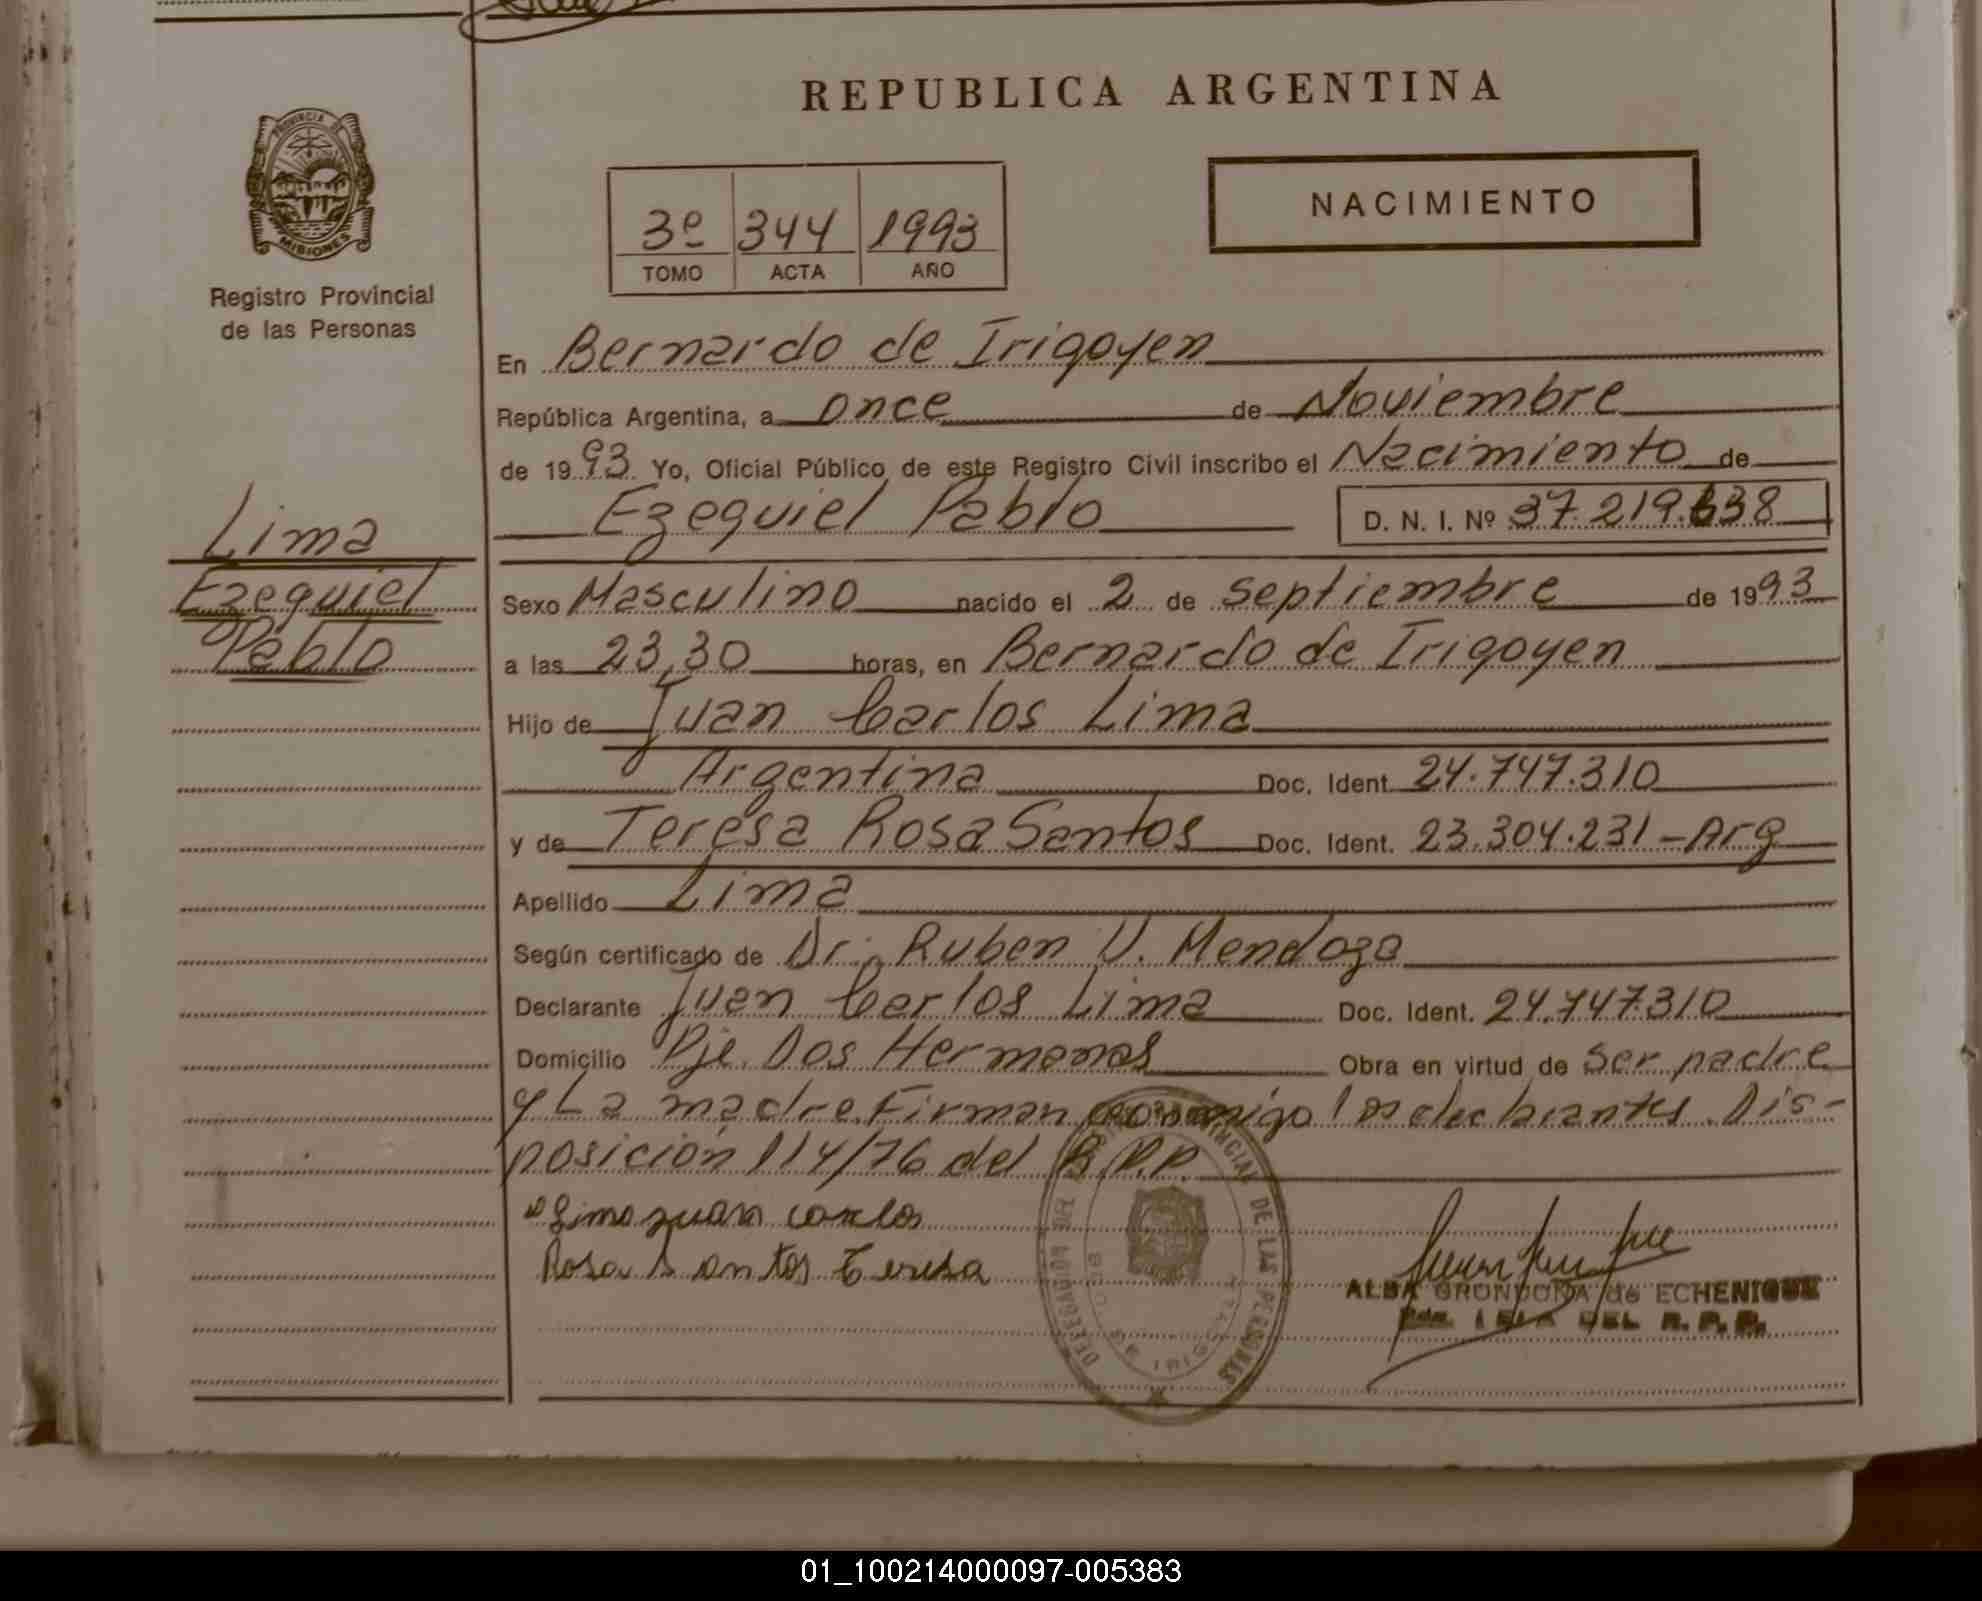 REPUBLICA ARGENTINA
PROVINCIA DE
MISIONES
Registro Provincial
de las Personas
3º 344 1993
TOMO ACTA AÑO
NACIMIENTO
En Bernardo de Irigoyen
República Argentina, a once de Noviembre
de 1993 Yo, Oficial Público de este Registro Civil inscribo el Nacimiento de
Ezequiel Pablo D. N. I. Nº 37.219.638
Lima
Ezequiel
Pablo
Sexo Masculino nacido el 2 de septiembre de 1993
a las 23,30 horas, en Bernardo de Irigoyen
Hijo de Juan Carlos Lima
Argentina Doc. Ident. 24.747.310
y de Teresa Rosa Santos Doc. Ident. 23.304.231 - Arg
Apellido Lima
Según certificado de Dr. Ruben V. Mendoza
Declarante Juan Carlos Lima Doc. Ident. 24.747.310
Domicilio Pje. Dos Hermanas Obra en virtud de ser padre
y La madre. Firman conmigo los declarantes. Dis-
posición 114/76 del R.P.P.
Lima Juan carlos
Rosa Santos Teresa
DELEGACION DEL REGISTRO PROVINCIAL DE LAS PERSONAS
ALBA GRONDONA de ECHENIQUE
DEL R. P. P.
01_100214000097-005383